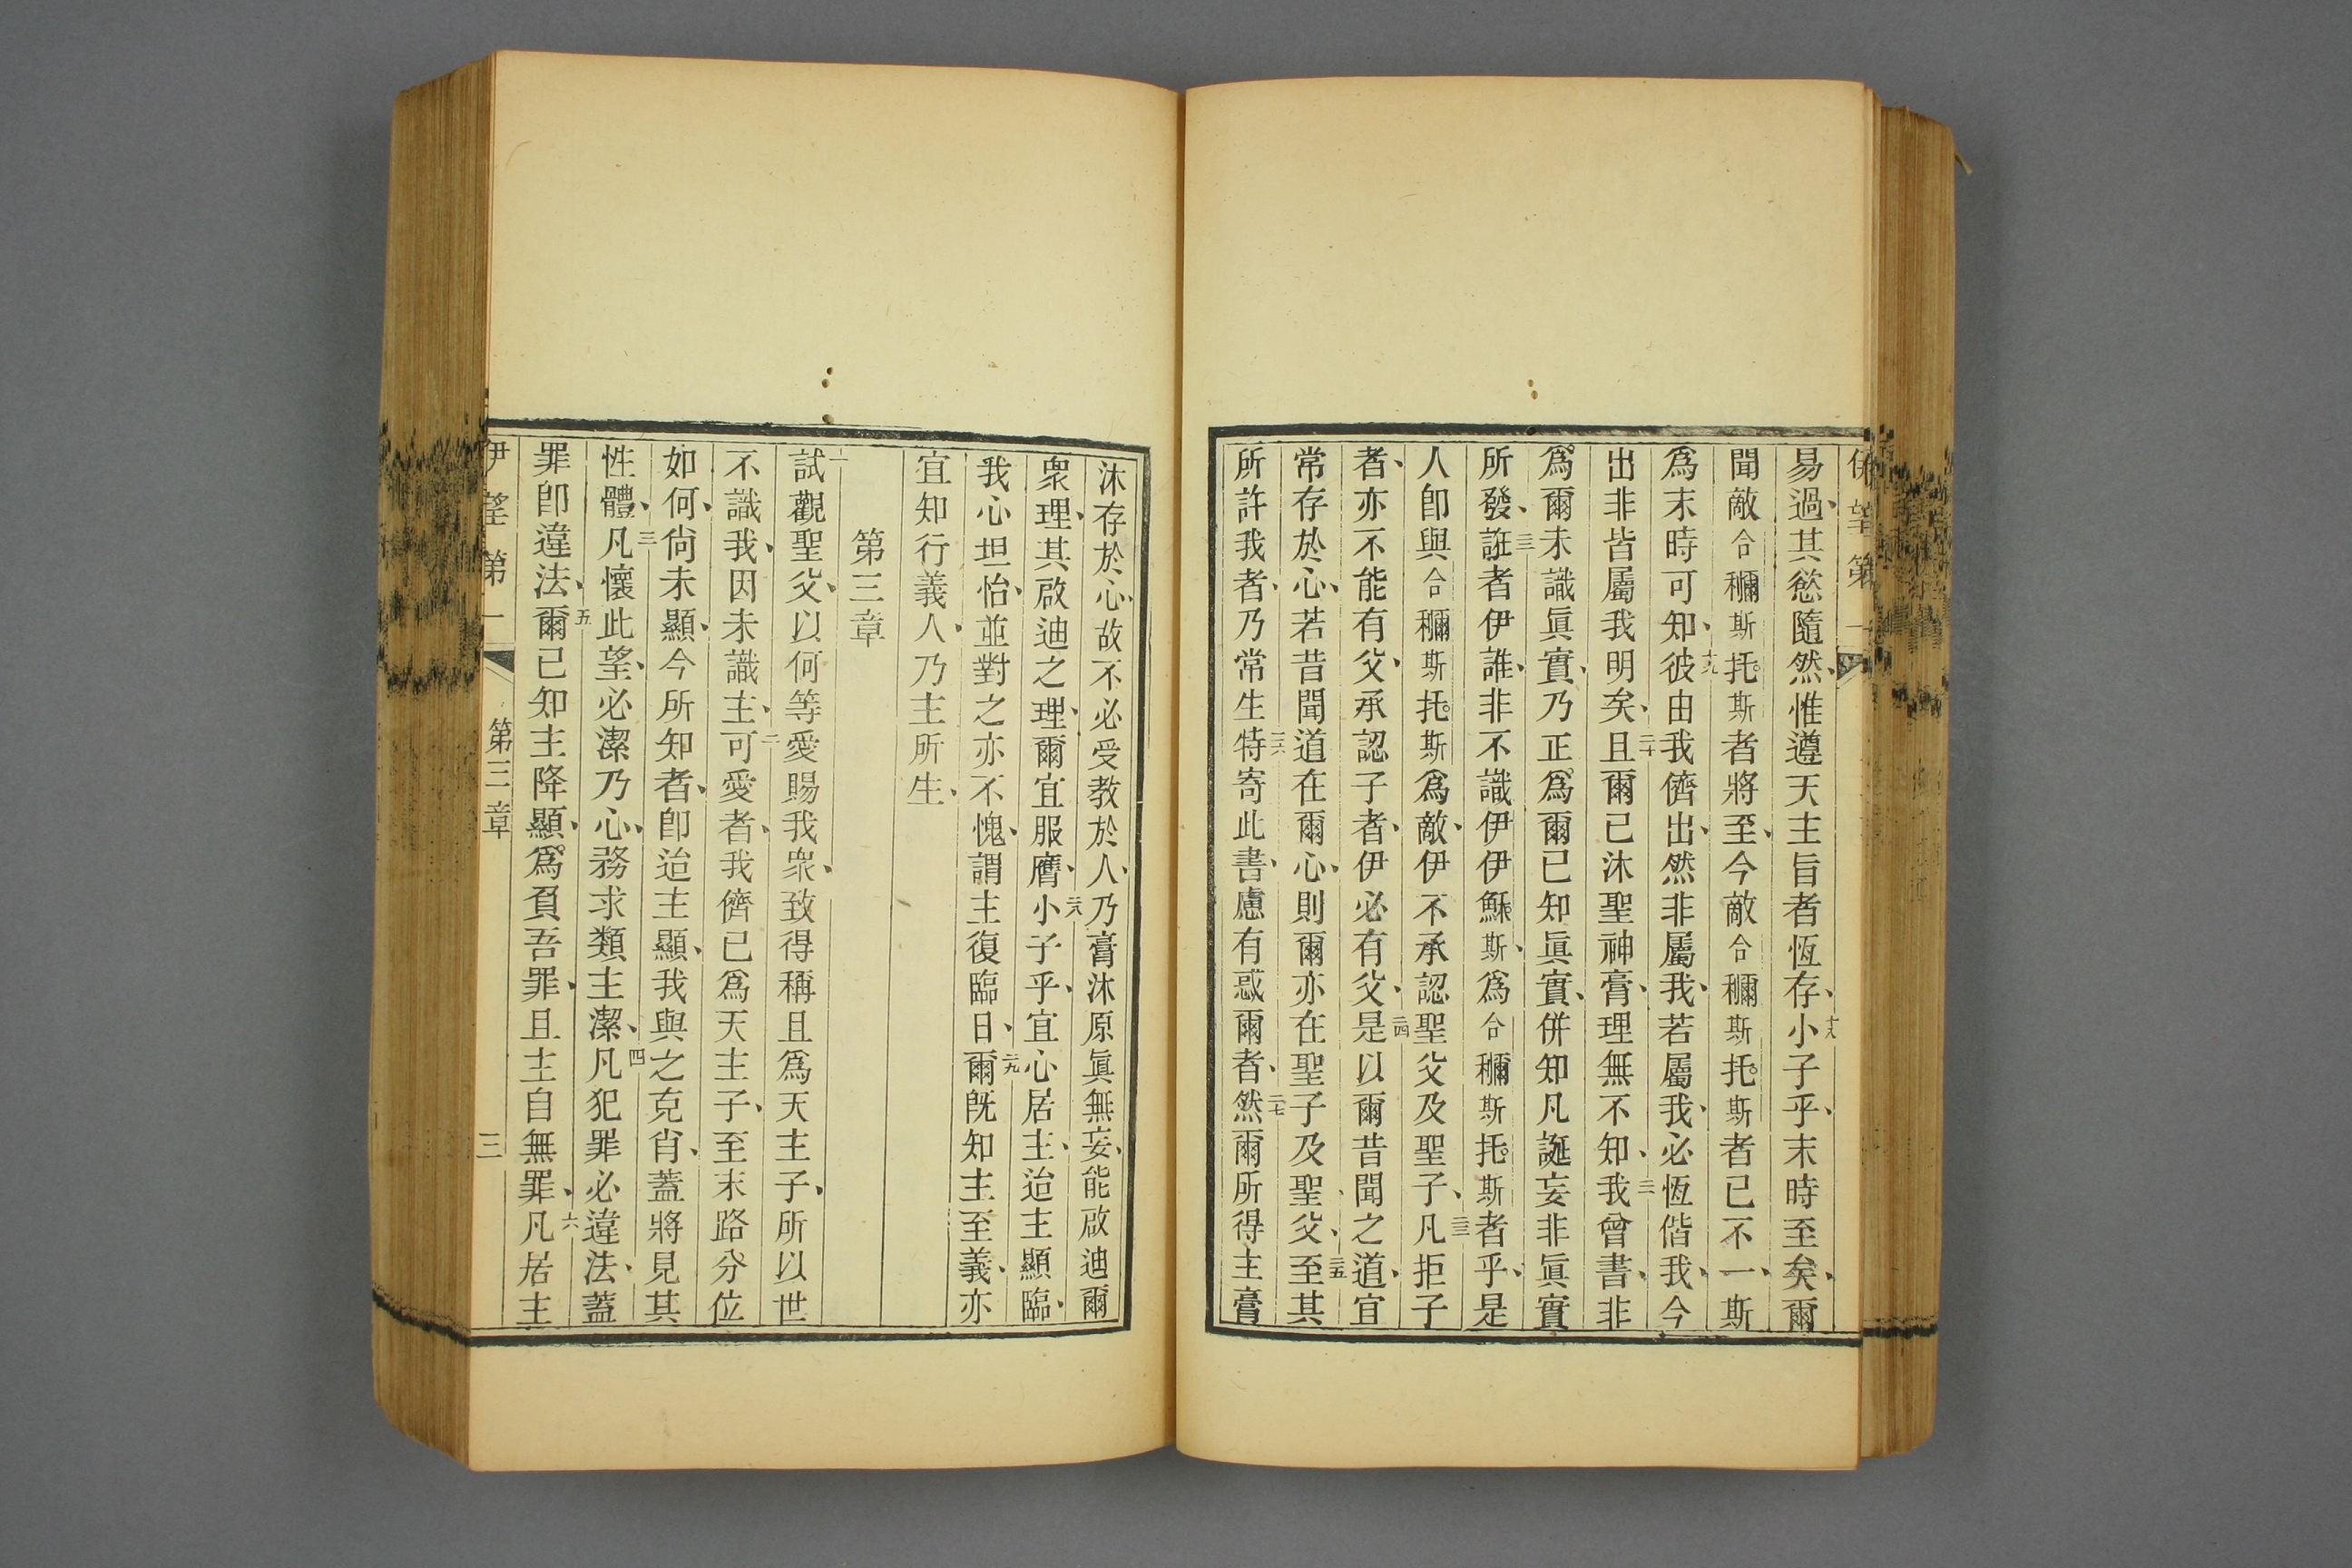 易過、其慾隨然、惟遵天主旨者恆存、十八小子乎、末時至矣、爾
聞敵合穪斯托斯者將至、今敵合穪斯托斯者已不一、斯
為末時可知、十九彼由我儕出、然非屬我、若屬我、必恆偕我、今
出非皆屬我明矣、二十且爾已沐聖神膏、理無不知、二一我曾書、非
為爾未識眞實、乃正為爾已知眞實、併知凡誕妄非眞實
所發、二二誑者伊誰、非不識伊伊穌斯、為合穪斯托斯者乎、是
人卽與合穪斯托斯為敵、伊不承認聖父及聖子、二三凡拒子
者、亦不能有父、承認子者、伊必有父、二四是以爾昔聞之道、宜
常存於心、若昔聞道在爾心、則爾亦在聖子及聖父、二五至其
所許我者、乃常生、二六特寄此書、慮有惑爾者、二七然爾所得主膏
沐存於心、故不必受教於人、乃膏沐原眞無妄、能啟迪爾
衆理、其啟迪之理、爾宜服膺、二八小子乎、宜心居主、迨主顯臨、
我心坦怡、並對之亦不愧、謂主復臨日、二九爾旣知主至義、亦
宜知行義人、乃主所生、
第三章
一試觀聖父、以何等愛賜我衆、致得稱且為天主子、所以世
不識我、因未識主、二可愛者、我儕已為天主子、至末路分位
如何、尙未顯、今所知者、卽迨主顯、我與之克肖、蓋將見其
性體、三凡懷此望、必潔乃心、務求類主潔、四凡犯罪必違法、蓋
罪卽違法、五爾已知主降顯、為負吾罪、且主自無罪、六凡居主
伊望第一 第三章 三